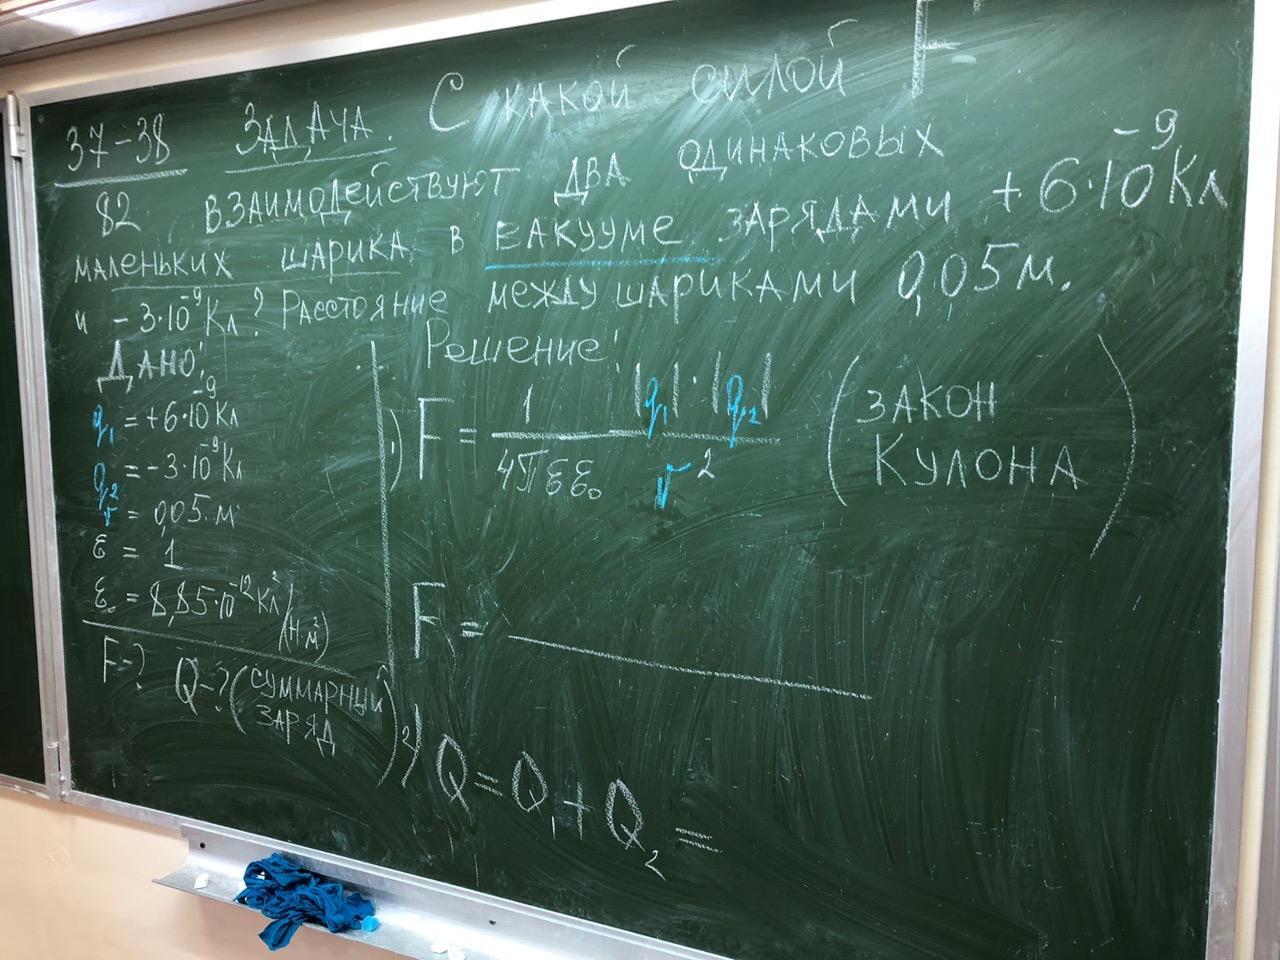 37-38 ЗАДАЧА. С КАКОЙ СИЛОЙ F
82 ВЗАИМОДЕЙСТВУЮТ ДВА ОДИНАКОВЫХ
МАЛЕНЬКИХ ШАРИКА В ВАКУУМЕ ЗАРЯДАМИ +6·10⁻⁹ Кл
и -3·10⁻⁹ Кл? РАССТОЯНИЕ МЕЖДУ ШАРИКАМИ 0,05 м.
ДАНО:
q₁ = +6·10⁻⁹ Кл
q₂ = -3·10⁻⁹ Кл
r = 0,05 м
ε = 1
ε₀ = 8,85·10⁻¹² Кл²/(Н·м²)
F-? Q-? (СУММАРНЫЙ
ЗАРЯД)
РЕШЕНИЕ:
1) F = 1/(4πεε₀) |q₁|·|q₂|/r² (ЗАКОН
КУЛОНА)
F =
2) Q = Q₁ + Q₂ =